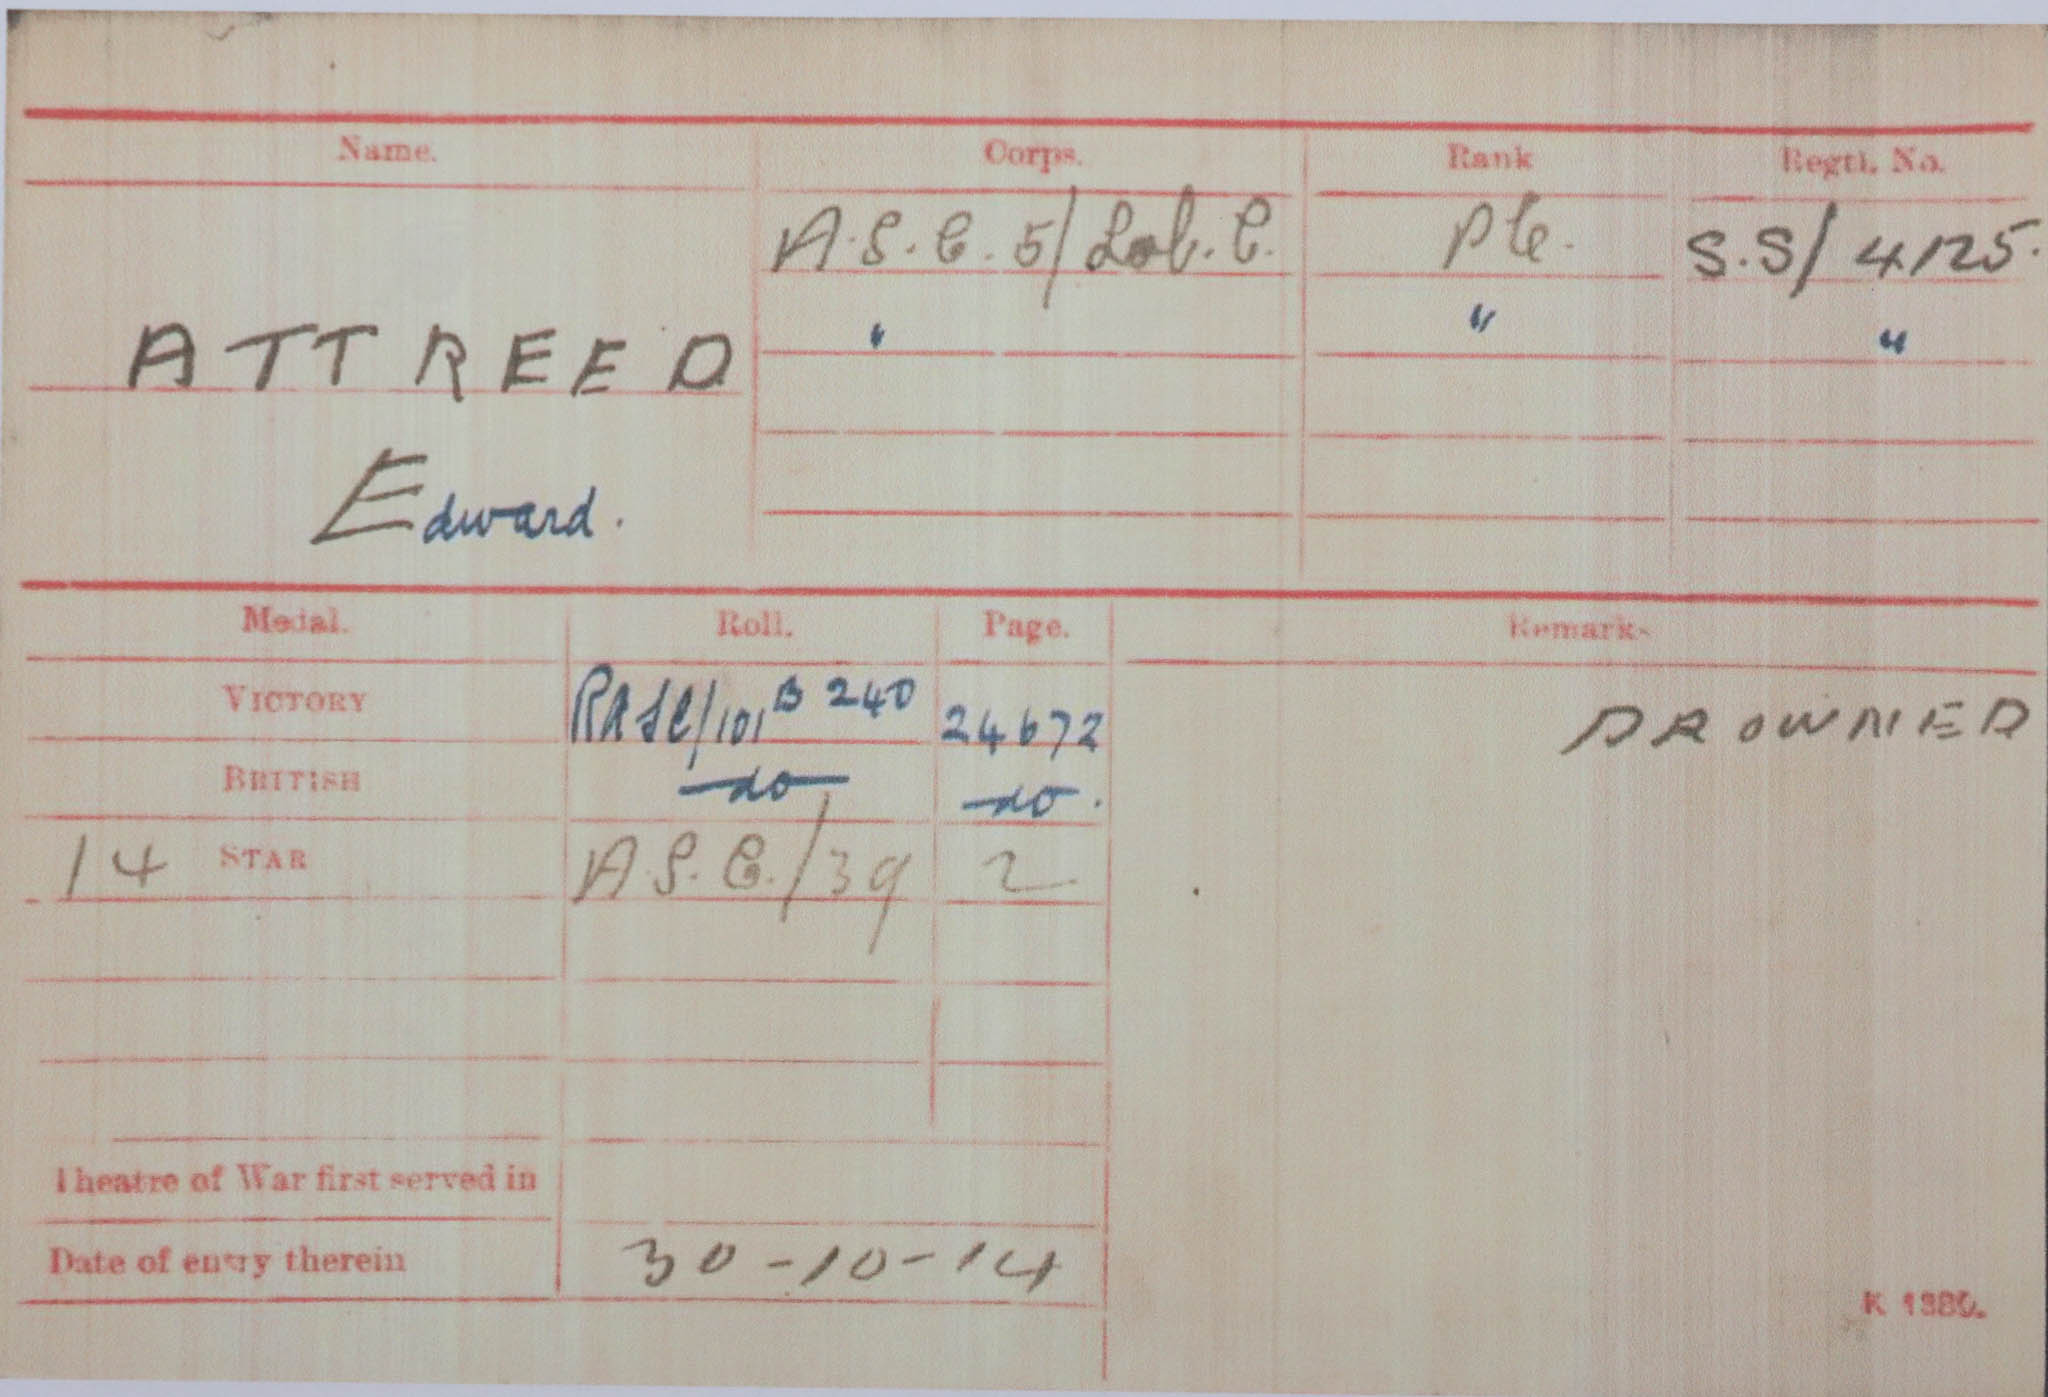 Name. Corps. Rank Regtl. No.
A.S.C. 5/Lab.C. Pte. S.S/4125.
" " "
ATTREED
Edward.
Medal. Roll. Page. Remarks
VICTORY RASC/101 B 240 24672 DROWNED
BRITISH do do.
14 STAR A.S.C./39 2
Theatre of War first served in
Date of entry therein 30-10-14
K 1380.